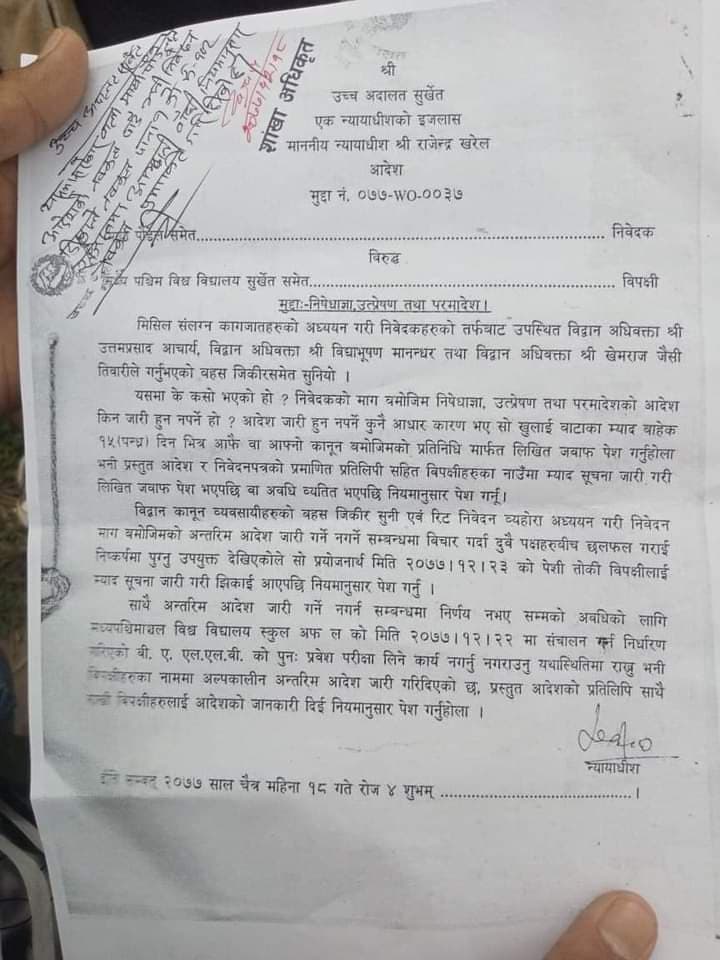 उच्च अदालत सुर्खेत
२०७७।१२।१८
शाखा अधिकृत
श्री
उच्च अदालत सुर्खेत
एक न्यायाधीशको इजलास
माननीय न्यायाधीश श्री राजेन्द्र खरेल
आदेश
मुद्दा नं. ०७७-WO-००३७
पौडेल समेत.......................................................................... निवेदक
विरुद्ध
पश्चिम विश्व विद्यालय सुर्खेत समेत...................................................... विपक्षी
मुद्दाः-निषेधाज्ञा,उत्प्रेषण तथा परमादेश।
मिसिल संलग्न कागजातहरुको अध्ययन गरी निवेदकहरुको तर्फबाट उपस्थित विद्वान अधिवक्ता श्री
उत्तमप्रसाद आचार्य, विद्वान अधिवक्ता श्री विद्याभूषण मानन्धर तथा विद्वान अधिवक्ता श्री खेमराज जैसी
तिवारीले गर्नुभएको बहस जिकीरसमेत सुनियो ।
यसमा के कसो भएको हो ? निवेदकको माग बमोजिम निषेधाज्ञा, उत्प्रेषण तथा परमादेशको आदेश
किन जारी हुन नपर्ने हो ? आदेश जारी हुन नपर्ने कुनै आधार कारण भए सो खुलाई बाटाका म्याद बाहेक
१५(पन्ध्र) दिन भित्र आफै वा आफ्नो कानून बमोजिमको प्रतिनिधि मार्फत लिखित जवाफ पेश गर्नुहोला
भनी प्रस्तुत आदेश र निवेदनपत्रको प्रमाणित प्रतिलिपी सहित विपक्षीहरुका नाउँमा म्याद सूचना जारी गरी
लिखित जवाफ पेश भएपछि वा अवधि व्यतित भएपछि नियमानुसार पेश गर्नू।
विद्वान कानून व्यवसायीहरुको बहस जिकीर सुनी एवं रिट निवेदन व्यहोरा अध्ययन गरी निवेदन
माग बमोजिमको अन्तरिम आदेश जारी गर्ने नगर्ने सम्बन्धमा विचार गर्दा दुवै पक्षहरुबीच छलफल गराई
निष्कर्षमा पुग्नु उपयुक्त देखिएकोले सो प्रयोजनार्थ मिति २०७७।१२।२३ को पेशी तोकी विपक्षीलाई
म्याद सूचना जारी गरी झिकाई आएपछि नियमानुसार पेश गर्नु ।
साथै अन्तरिम आदेश जारी गर्ने नगर्न सम्बन्धमा निर्णय नभए सम्मको अवधिको लागि
मध्यपश्चिमाञ्चल विश्व विद्यालय स्कुल अफ ल को मिति २०७७।१२।२२ मा संचालन गर्न निर्धारण
गरिएको बी. ए. एल.एल.बी. को पुनः प्रवेश परीक्षा लिने कार्य नगर्नु नगराउनु यथास्थितिमा राख्नु भनी
विपक्षीहरुका नाममा अल्पकालीन अन्तरिम आदेश जारी गरिदिएको छ, प्रस्तुत आदेशको प्रतिलिपि साथै
राखी विपक्षीहरुलाई आदेशको जानकारी दिई नियमानुसार पेश गर्नुहोला ।
न्यायाधीश
इति सम्वत् २०७७ साल चैत्र महिना १८ गते रोज ४ शुभम् .......................................।